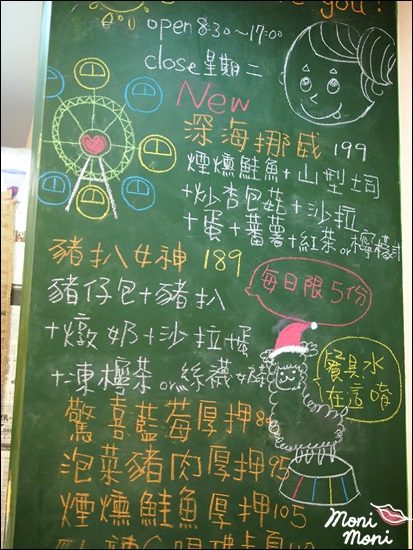 you !
open 8:30~17:00
close 星期二
New
深海挪威 199
煙燻鮭魚+山型土司
+炒杏包菇+沙拉
+蛋+蕃薯+紅茶or檸檬汁
豬扒女神 189
每日限5份
豬仔包+豬扒
+燉奶+沙拉+蛋
+凍檸茶or絲襪奶茶
餐具水
在這唷
驚喜藍莓厚押8
泡菜豬肉厚押95
煙燻鮭魚厚押105
Moni
Moni